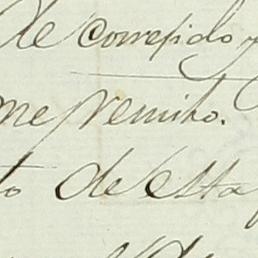 de correjido y
me premito.
to de esta